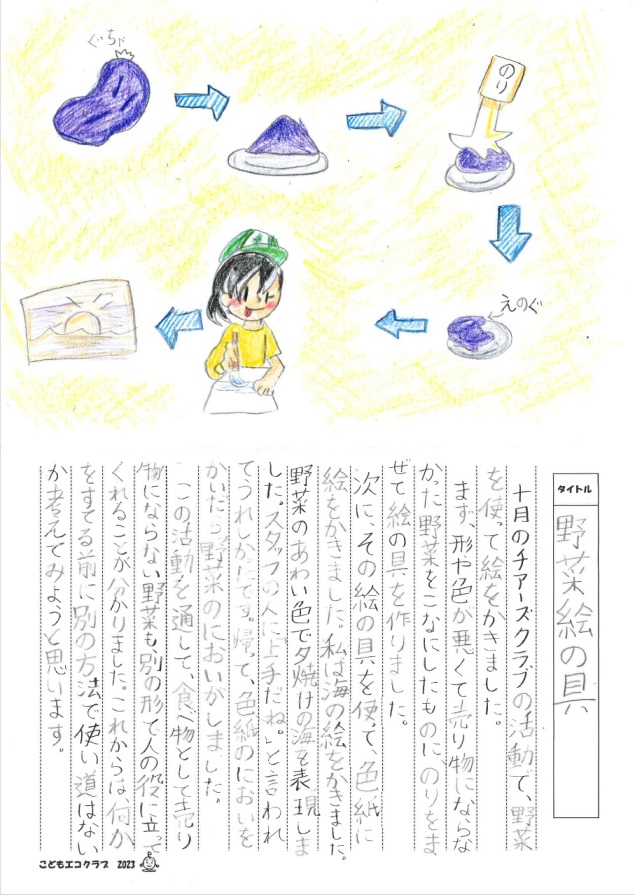 ぐちゃ
のり
えのぐ
タイトル
野菜絵の具
十月のチアーズクラブの活動で、野菜
を使って絵をかきました。
まず、形や色が悪くて売り物にならな
かった野菜をこなにしたものに、のりをま
ぜて絵の具を作りました。
次に、その絵の具を使って、色紙に
絵をかきました。私は海の絵をかきました。
野菜のあわい色で夕焼けの海を表現しま
した。スタッフの人に「上手だね。」と言われ
てうれしかたです。帰って、色紙のにおいを
かいだら野菜のにおいがしました。
この活動を通して、食べ物として売り
物にならない野菜も、別の形で人の役に立って
くれることが分かりました。これからは、何か
をすてる前に別の方法で使い道はない
か考えてみようと思います。
こどもエコクラブ 2023